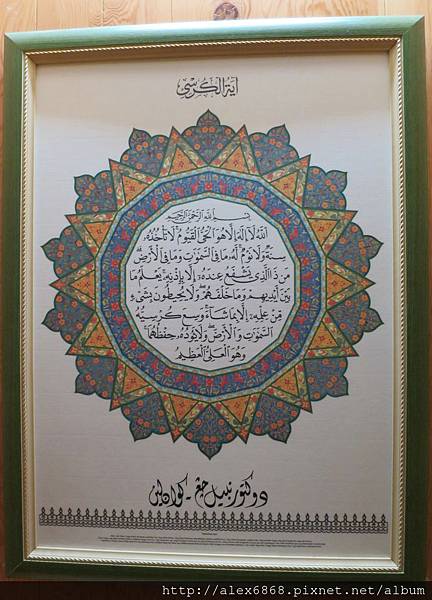 آية الكرسي
بِسْمِ اللَّهِ الرَّحْمَٰنِ الرَّحِيمِ
اللَّهُ لَا إِلَٰهَ إِلَّا هُوَ الْحَيُّ الْقَيُّومُ لَا تَأْخُذُهُ
سِنَةٌ وَلَا نَوْمٌ لَهُ مَا فِي السَّمَٰوَٰتِ وَمَا فِي الْأَرْضِ
مَنْ ذَا الَّذِي يَشْفَعُ عِنْدَهُ إِلَّا بِإِذْنِهِ يَعْلَمُ مَا
بَيْنَ أَيْدِيهِمْ وَمَا خَلْفَهُمْ وَلَا يُحِيطُونَ بِشَيْءٍ
مِنْ عِلْمِهِ إِلَّا بِمَا شَاءَ وَسِعَ كُرْسِيُّهُ
السَّمَٰوَٰتِ وَالْأَرْضَ وَلَا يَئُودُهُ حِفْظُهُمَا
وَهُوَ الْعَلِيُّ الْعَظِيمُ
دوكتور نبيل - كوان لين
http://alex6868.pixnet.net/album